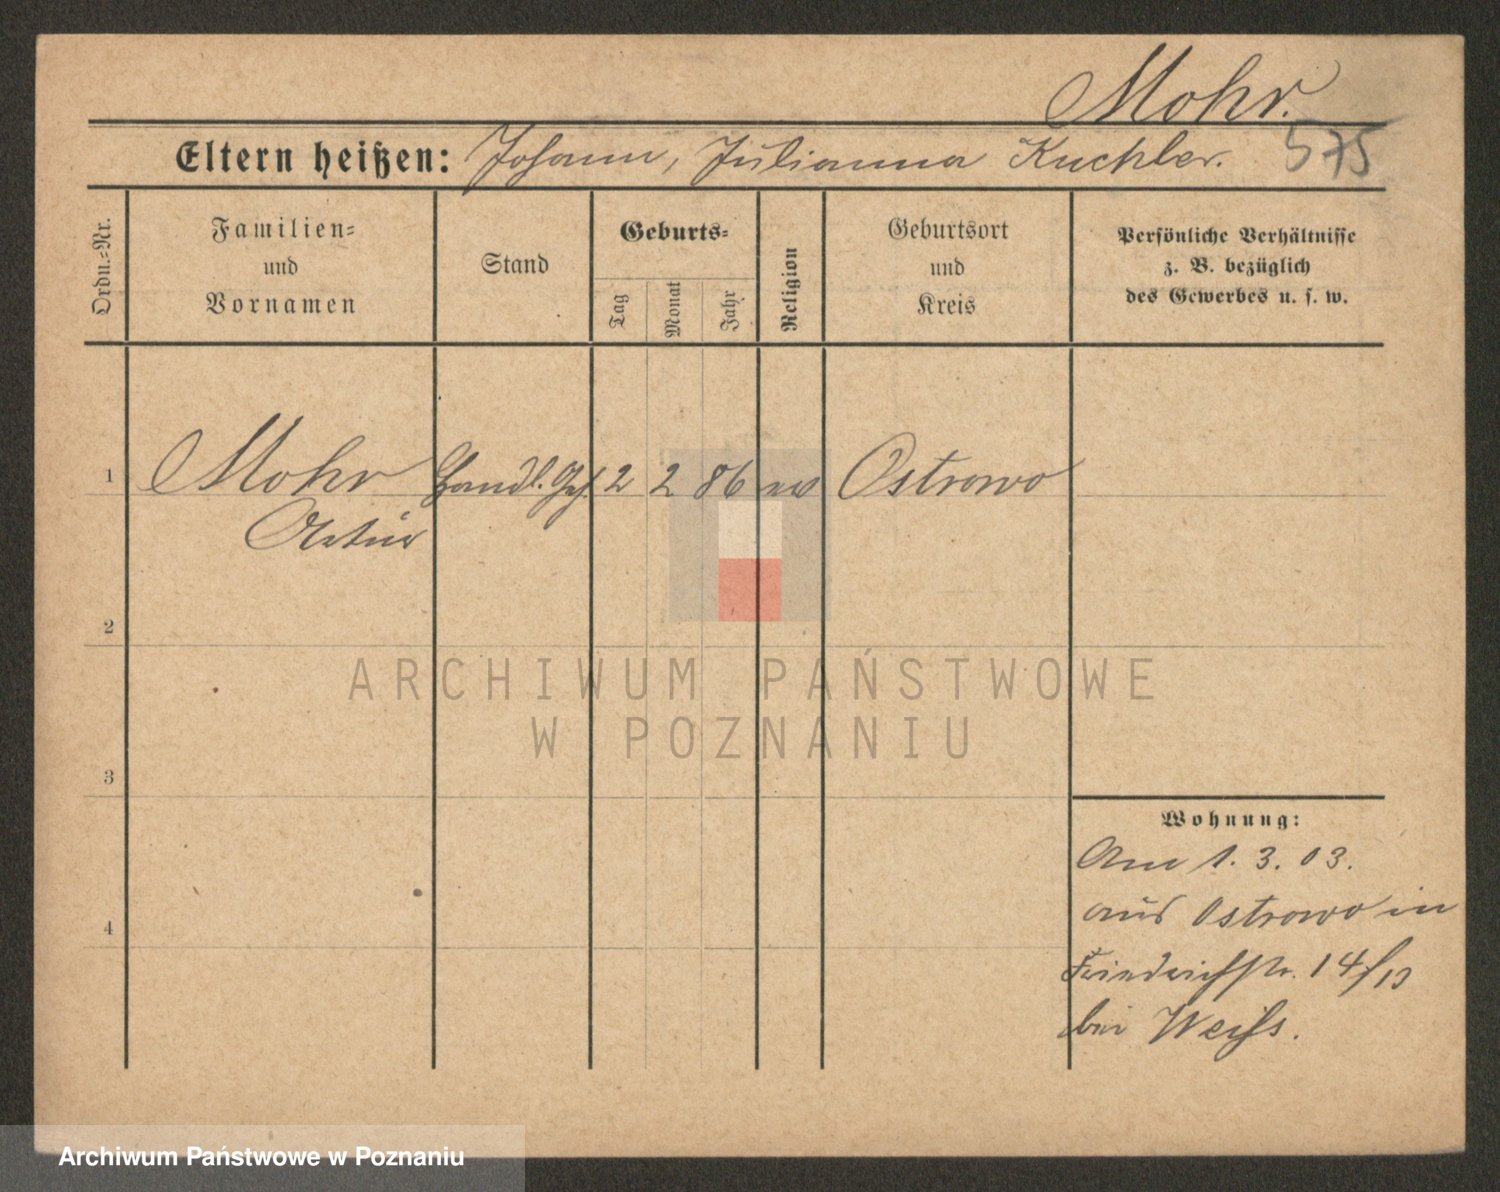 Mohr.
575
Eltern heißen: Johann, Julianna Kuchler.
Ordn.=Nr.
Familien=
und
Vornamen
Stand
Geburts=
Tag
Monat
Jahr
Religion
Geburtsort
und
Kreis
Persönliche Verhältnisse
z. B. bezüglich
des Gewerbes u. s. w.
1 Mohr Handl. Geh. 2 2 86 ev Ostrowo
Artur
2
3
4
Wohnung:
Am 1. 3. 03.
aus Ostrowo in
Friedrichstr. 14/13
bei Weiß.
ARCHIWUM PAŃSTWOWE
W POZNANIU
Archiwum Państwowe w Poznaniu